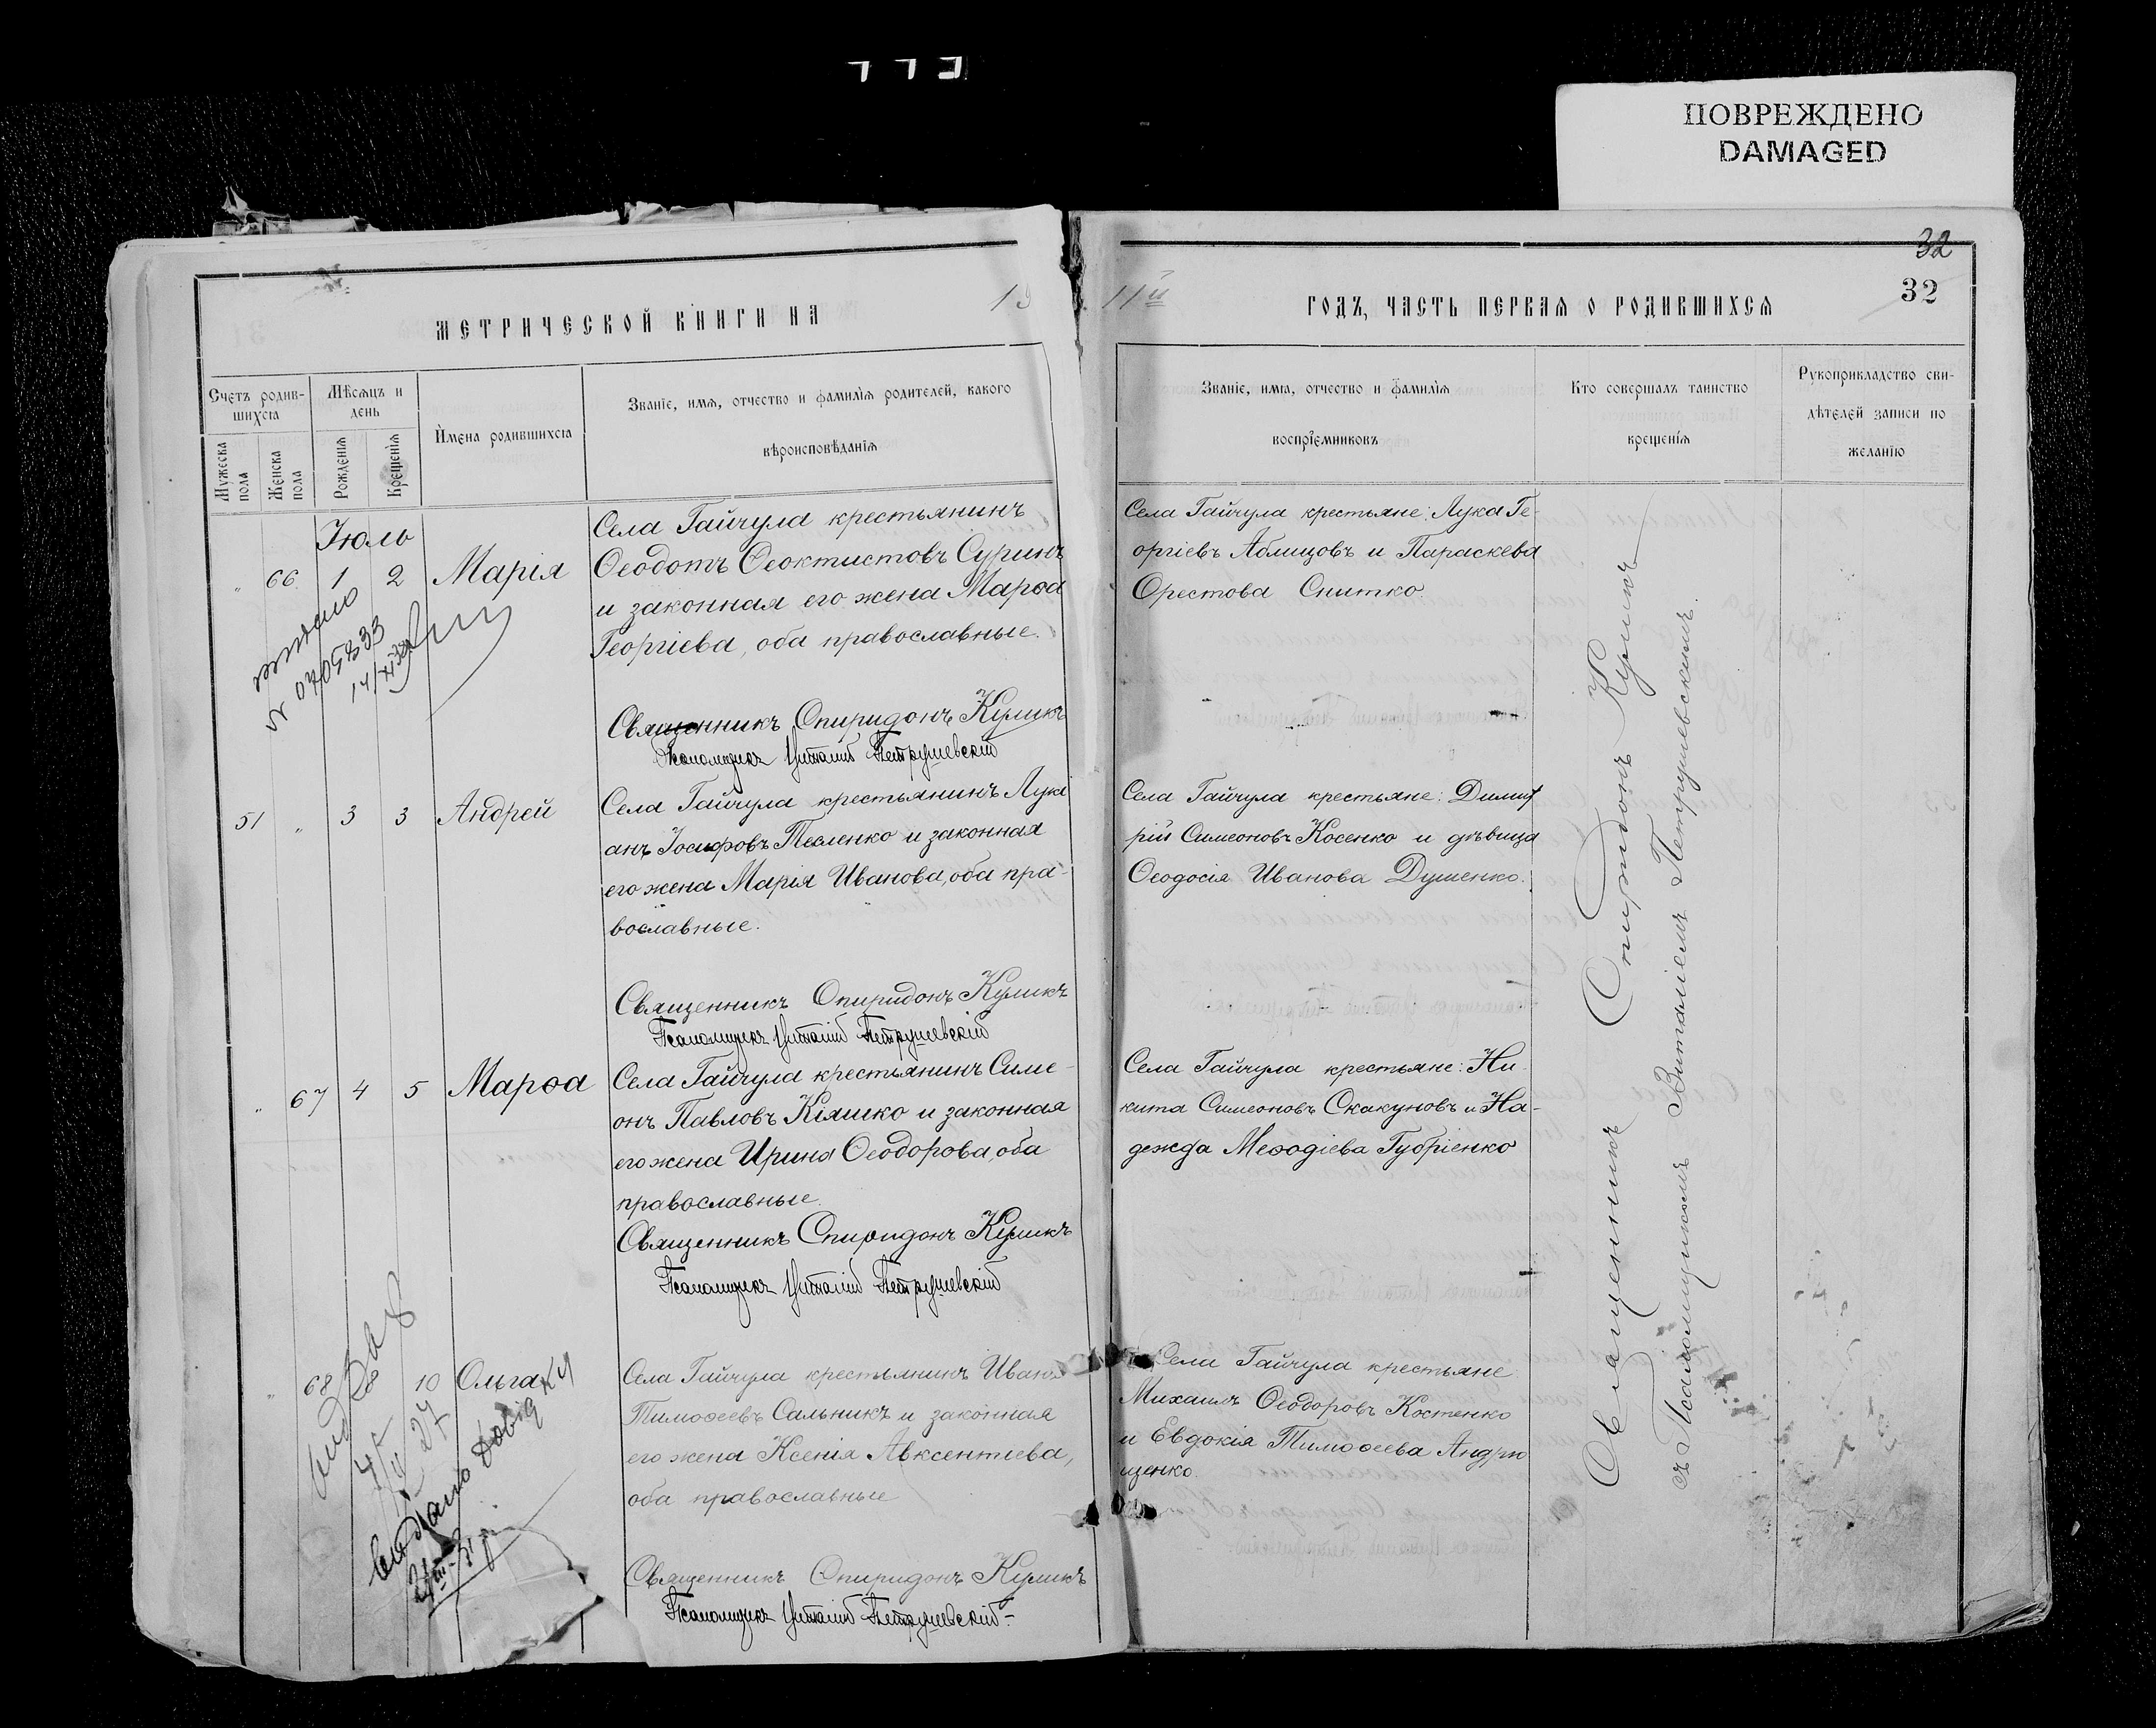 ПОВРЕЖДЕНО
DAMAGED
32
32
МЕТРИЧЕСКОЙ КНИГИ НА 19
11й ГОДЪ, ЧАСТЬ ПЕРВАЯ О РОДИВШИХСЯ
Счетъ родив-
шихся
Мужеска пола
Женска пола
Мѣсяцъ и
день
Рожденія
Крещенія
Имена родившихся
Званіе, имя, отчество и фамилія родителей, какого
вѣроисповѣданія
Званіе, имя, отчество и фамилія
воспріемниковъ
Кто совершалъ таинство
крещенія
Рукоприкладство сви-
дѣтелей записи по
желанію
Іюль
" 66 1 2 Марія
Села Гайчула крестьянинъ
Ѳеодотъ Ѳеоктистовъ Суринъ
и законная его жена Марѳа
Георгіева, оба православные.
Священникъ Спиридонъ Куликъ
Псаломщикъ Виталій Петрушевскій
Села Гайчула крестьяне: Лука Ге-
оргіевъ Аблицовъ и Параскева
Орестова Снитко.
51 " 3 3 Андрей
Села Гайчула крестьянинъ Луки
анъ Іосифовъ Тесленко и законная
его жена Марія Иванова, оба пра-
вославные.
Священникъ Спиридонъ Куликъ
Псаломщикъ Виталій Петрушевскій
Села Гайчула крестьяне: Димит
рій Симеоновъ Косенко и дѣвица
Ѳеодосія Иванова Душенко.
" 67 4 5 Марѳа
Села Гайчула крестьянинъ Симе-
онъ Павловъ Кіяшко и законная
его жена Ирина Ѳеодорова, оба
православные
Священникъ Спиридонъ Куликъ
Псаломщикъ Виталій Петрушевскій
Села Гайчула крестьяне: Ни-
кита Симеоновъ Скакуновъ и На-
дежда Меѳодіева Губріенко
" 68 10 Ольга
Села Гайчула крестьянинъ Иванъ
Тимоѳеевъ Сальникъ и законная
его жена Ксенія Авксентіева,
оба православные
Священникъ Спиридонъ Куликъ
Псаломщикъ Виталій Петрушевскій
Села Гайчула крестьяне
Михаилъ Ѳеодоровъ Костенко
и Евдокія Тимоѳеева Андрю
щенко.
Священникъ Спиридонъ Куликъ
съ Псаломщикомъ Виталіемъ Петрушевскимъ.